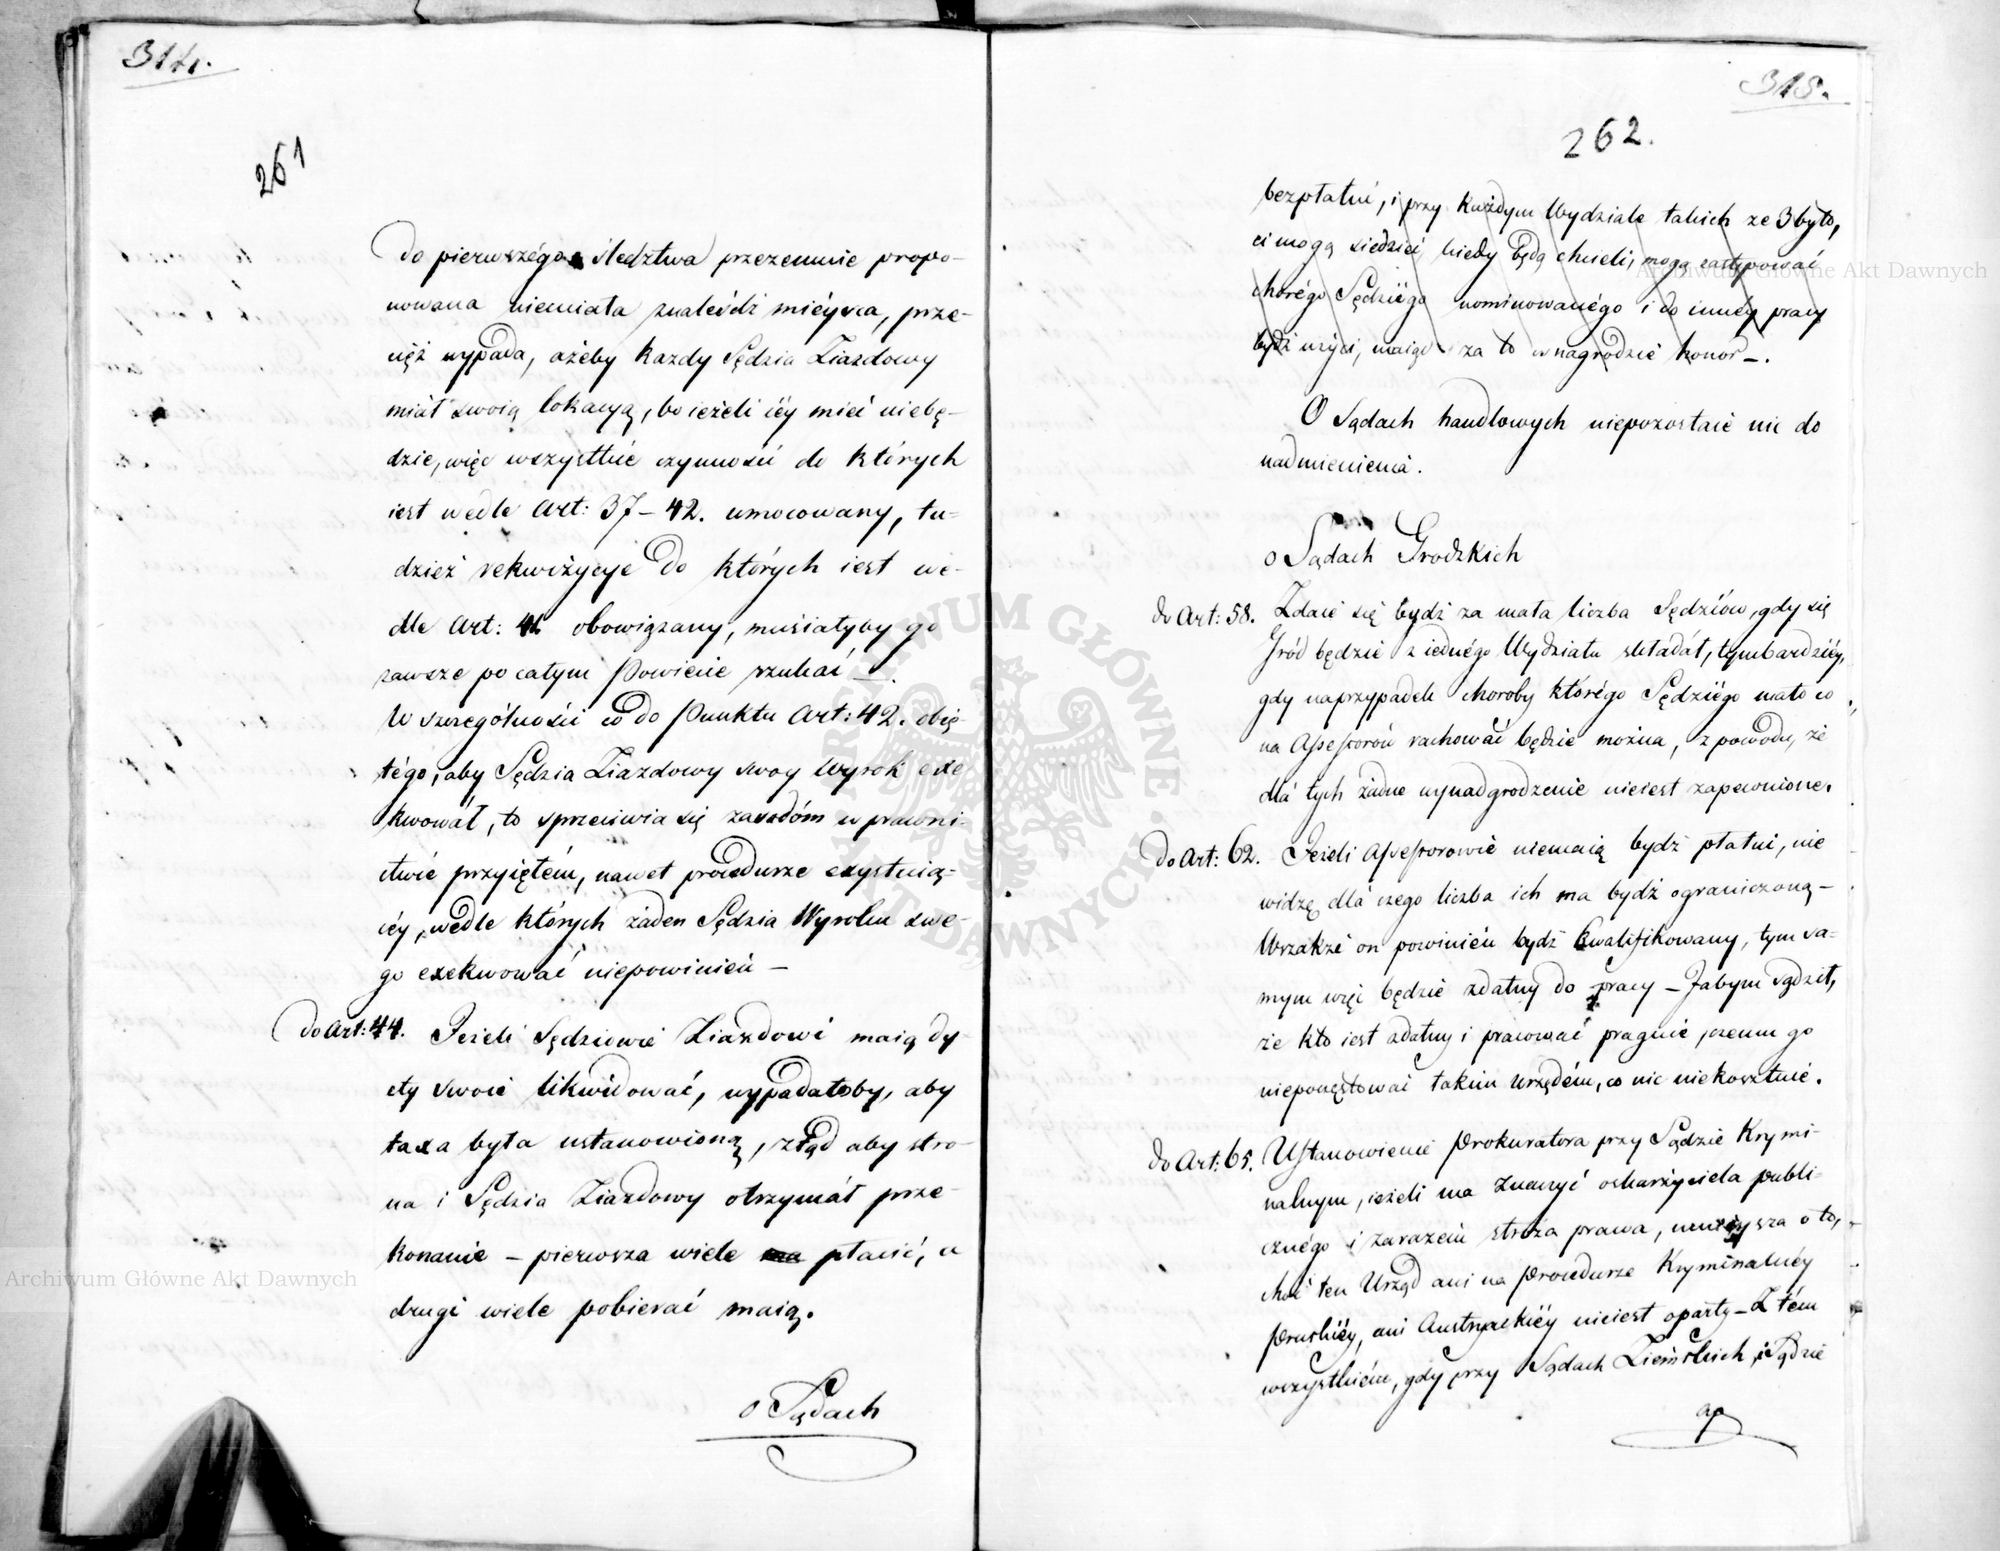 314.
261
do pierwszégo śledztwa przezemnie propo-
nowana niemiała znaleźdź miéysca, prze-
cięż wypada, ażeby każdy Sędzia Ziazdowy
miał swoią lokacyą, bo ieżeli iéy mieć niebę-
dzie, więc wszystkie czynności do których
iest wedle Art: 37-42. umocowany, tu-
dzież rekwizycye do których iest we-
dle Art: obowiązany, musiałyby go
zawsze po całym Powiecie szukać —.
W szczególności co do Punktu Art: 42. obię-
tégo, aby Sędzia Ziazdowy swoy Wyrok exe
kwował, to sprzeciwia się zasadóm w prawni-
ctwie przyiętém, nawet procedurze exystuią-
céy, wedle których żaden Sędzia Wyroku swe-
go exekwować niepowinien —
do Art: 44. Jeżeli Sędziowie Ziazdowi maią dy-
ety swoie likwidować, wypadałoby, aby
taxa była ustanowioną, ztąd aby stro-
na i Sędzia Ziazdowy otrzymał prze-
konanie – pierwsza wiele płacić, a
drugi wiele pobierać maią.
o Sądach
315.
262.
bezpłatni, i przy każdym Wydziale takich ze 3 było,
ci mogą siedzieć kiedy będą chcieli, mogą zastępować
chorégo Sędziégo nominowanégo i do innéy pracy
bydź użyci, maiąc za to w nagrodzie honor –.
O Sądach handlowych niepozostaie nic do
nadmienienia.
o Sądach Grodzkich
do Art: 58. Zdaie się bydź za mała liczba Sędziów, gdy się
Gród będzie z iednégo Wydziału składał, tymbardziéy,
gdy naprzypadek choroby którégo Sędziégo mało co
na Assessorów rachować będzie można, z powodu, że
dla tych żadne wynadgrodzenie nieiest zapewnione.
do Art: 62. Jeżeli Assessorowie niemaią bydź płatni, nie
widzę dla czego liczba ich ma bydź ograniczoną –
Wszakże on powinien bydź kwalifikowany, tym sa-
mym więc będzie zdatny do pracy – Jabym sądził,
że kto iest zdatny i pracować pragnie, czemu go
nieponęłować takim Urzędém, co nic niekosztuie.
do Art: 65. Ustanowienie Prokuratora przy Sądzie Krymi-
nalnym, ieżeli ma znaczyć oskarżyciela publi-
cznégo i zarazem stróża prawa, mnieysza o to,
choć ten Urząd ani na Procedurze Kryminalnéy
Pruskiéy, ani Austryackiéy nieiest oparty – Z tém
wszystkiém, gdy przy Sądach Ziemskich, i Sądzie
ap
Archiwum Główne Akt Dawnych
Archiwum Główne Akt Dawnych
ARCHIWUM GŁÓWNE AKT DAWNYCH